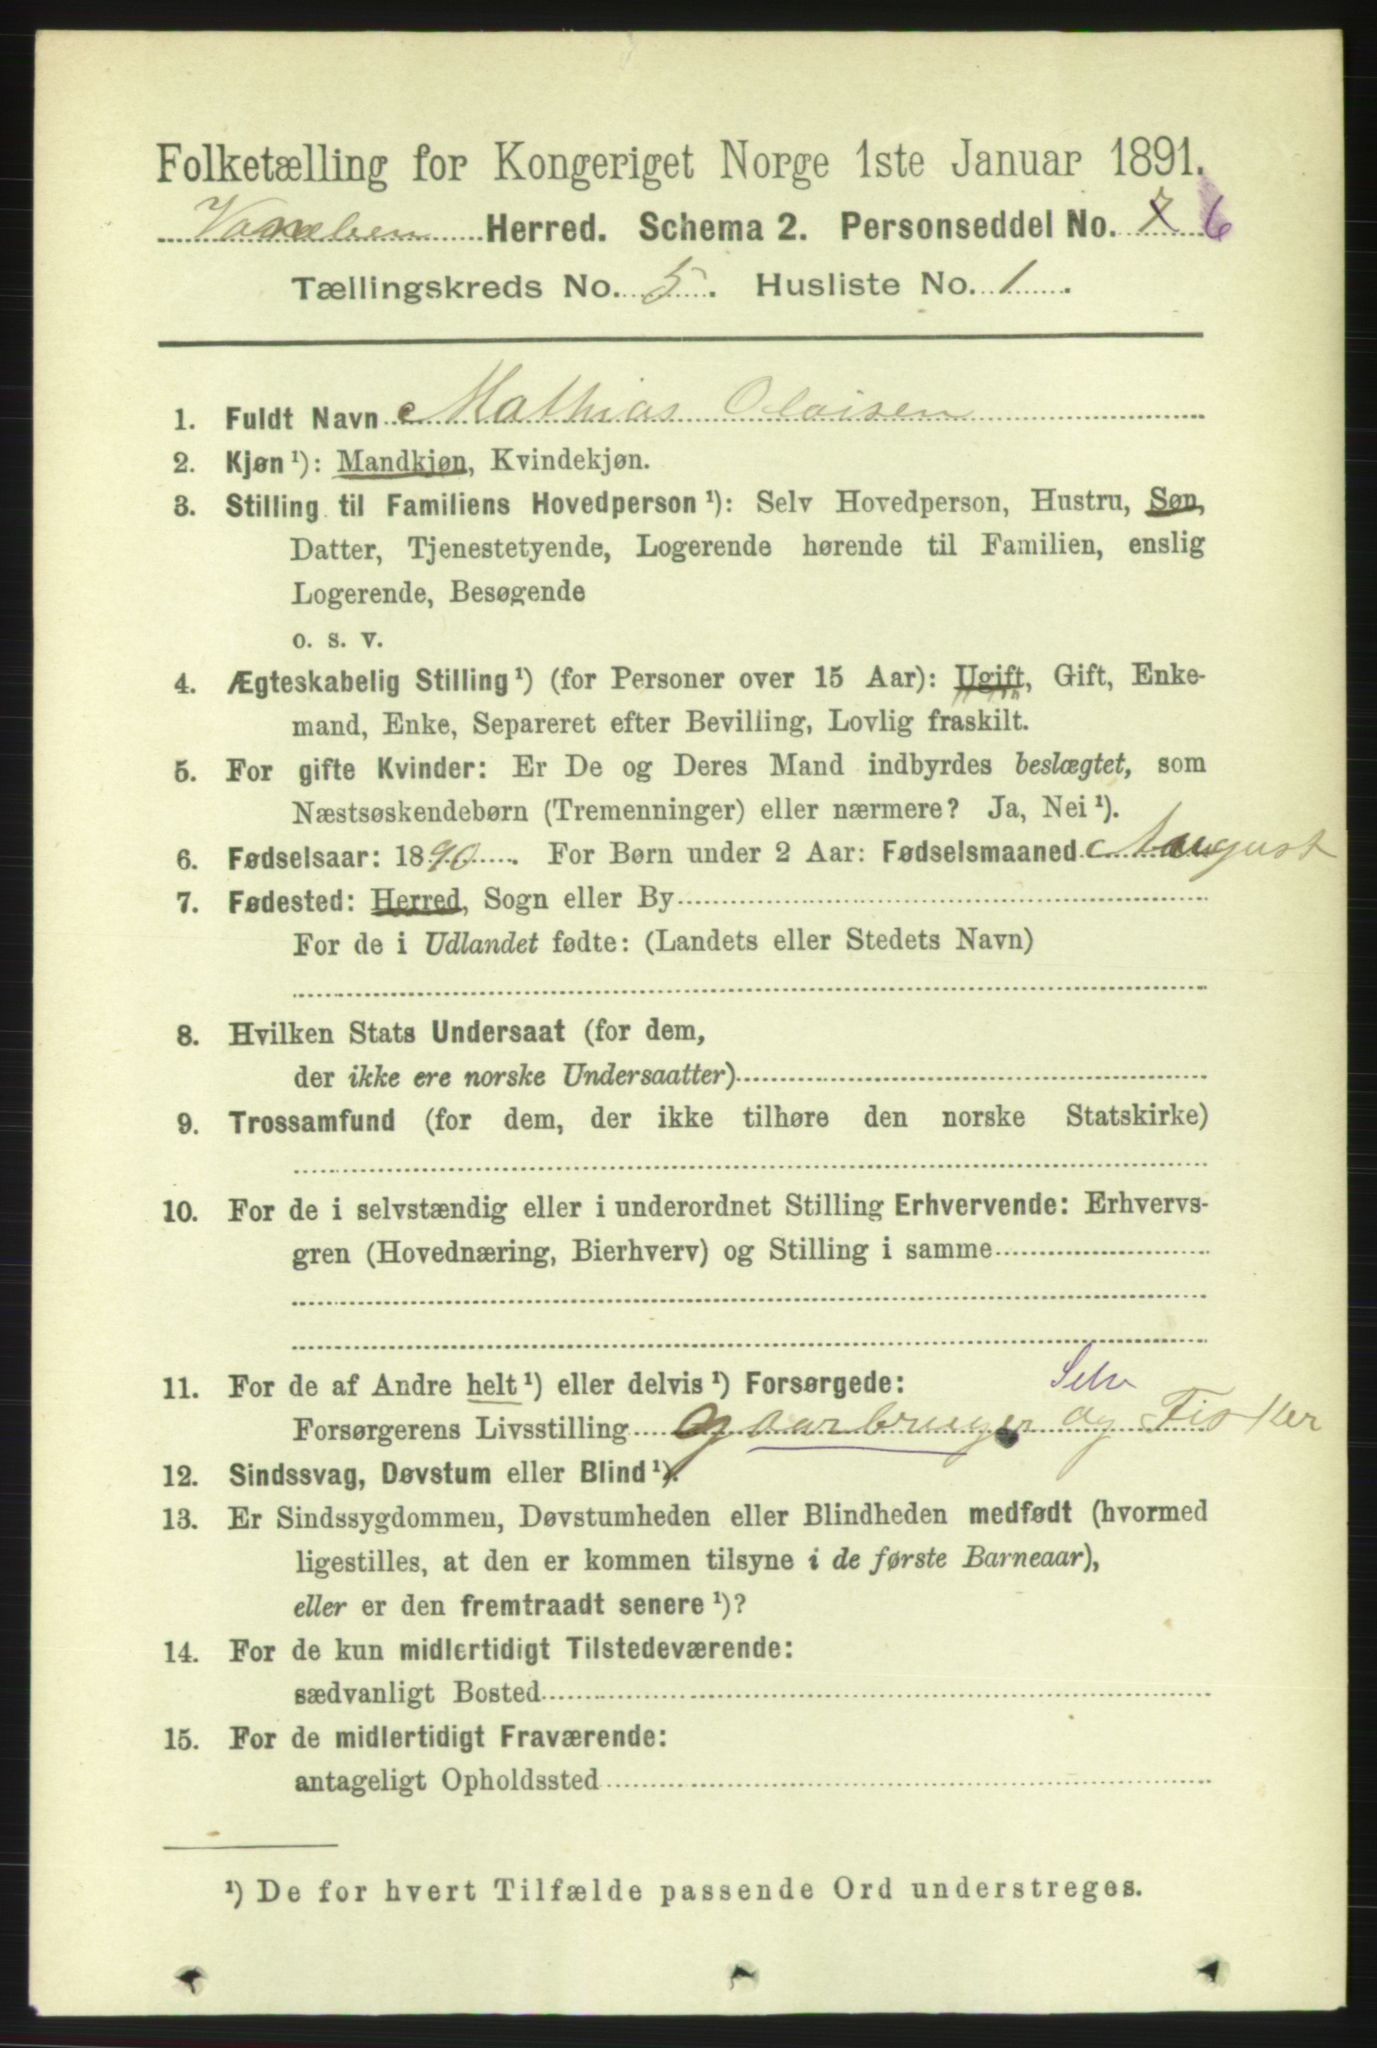 Folketælling for Kongeriget Norge 1ste Januar 1891.
Herred. Schema 2. Personseddel No. 7 6
Tællingskreds No. 5. Husliste No. 1.
1. Fuldt Navn Mathias Olaisen
2. Kjøn ¹): Mandkjøn, Kvindekjøn.
3. Stilling til Familiens Hovedperson ¹): Selv Hovedperson, Hustru, Søn,
Datter, Tjenestetyende, Logerende hørende til Familien, enslig
Logerende, Besøgende
o. s. v.
4. Ægteskabelig Stilling ¹) (for Personer over 15 Aar): Ugift, Gift, Enke-
mand, Enke, Separeret efter Bevilling, Lovlig fraskilt.
5. For gifte Kvinder: Er De og Deres Mand indbyrdes beslægtet, som
Næstsøskendebørn (Tremenninger) eller nærmere? Ja, Nei ¹).
6. Fødselsaar: 1890. For Børn under 2 Aar: Fødselsmaaned August
7. Fødested: Herred, Sogn eller By
For de i Udlandet fødte: (Landets eller Stedets Navn)
8. Hvilken Stats Undersaat (for dem,
der ikke ere norske Undersaatter)
9. Trossamfund (for dem, der ikke tilhøre den norske Statskirke)
10. For de i selvstændig eller i underordnet Stilling Erhvervende: Erhvervs-
gren (Hovednæring, Bierhverv) og Stilling i samme
11. For de af Andre helt ¹) eller delvis ¹) Forsørgede:
Selv
Forsørgerens Livsstilling Gaardbruger og Fisker
12. Sindssvag, Døvstum eller Blind ¹).
13. Er Sindssygdommen, Døvstumheden eller Blindheden medfødt (hvormed
ligestilles, at den er kommen tilsyne i de første Barneaar),
eller er den fremtraadt senere ¹)?
14. For de kun midlertidigt Tilstedeværende:
sædvanligt Bosted
15. For de midlertidigt Fraværende:
antageligt Opholdssted
¹) De for hvert Tilfælde passende Ord understreges.